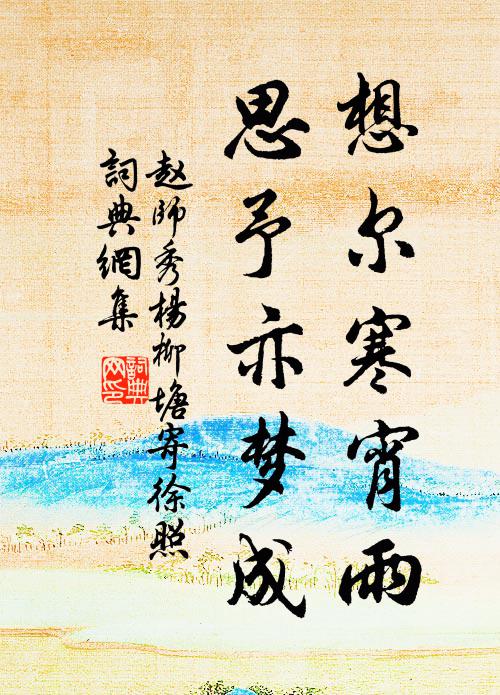 想尔寒宵雨
思予亦梦成
赵师秀杨柳塘寄徐照
詞典網集
詞典网印